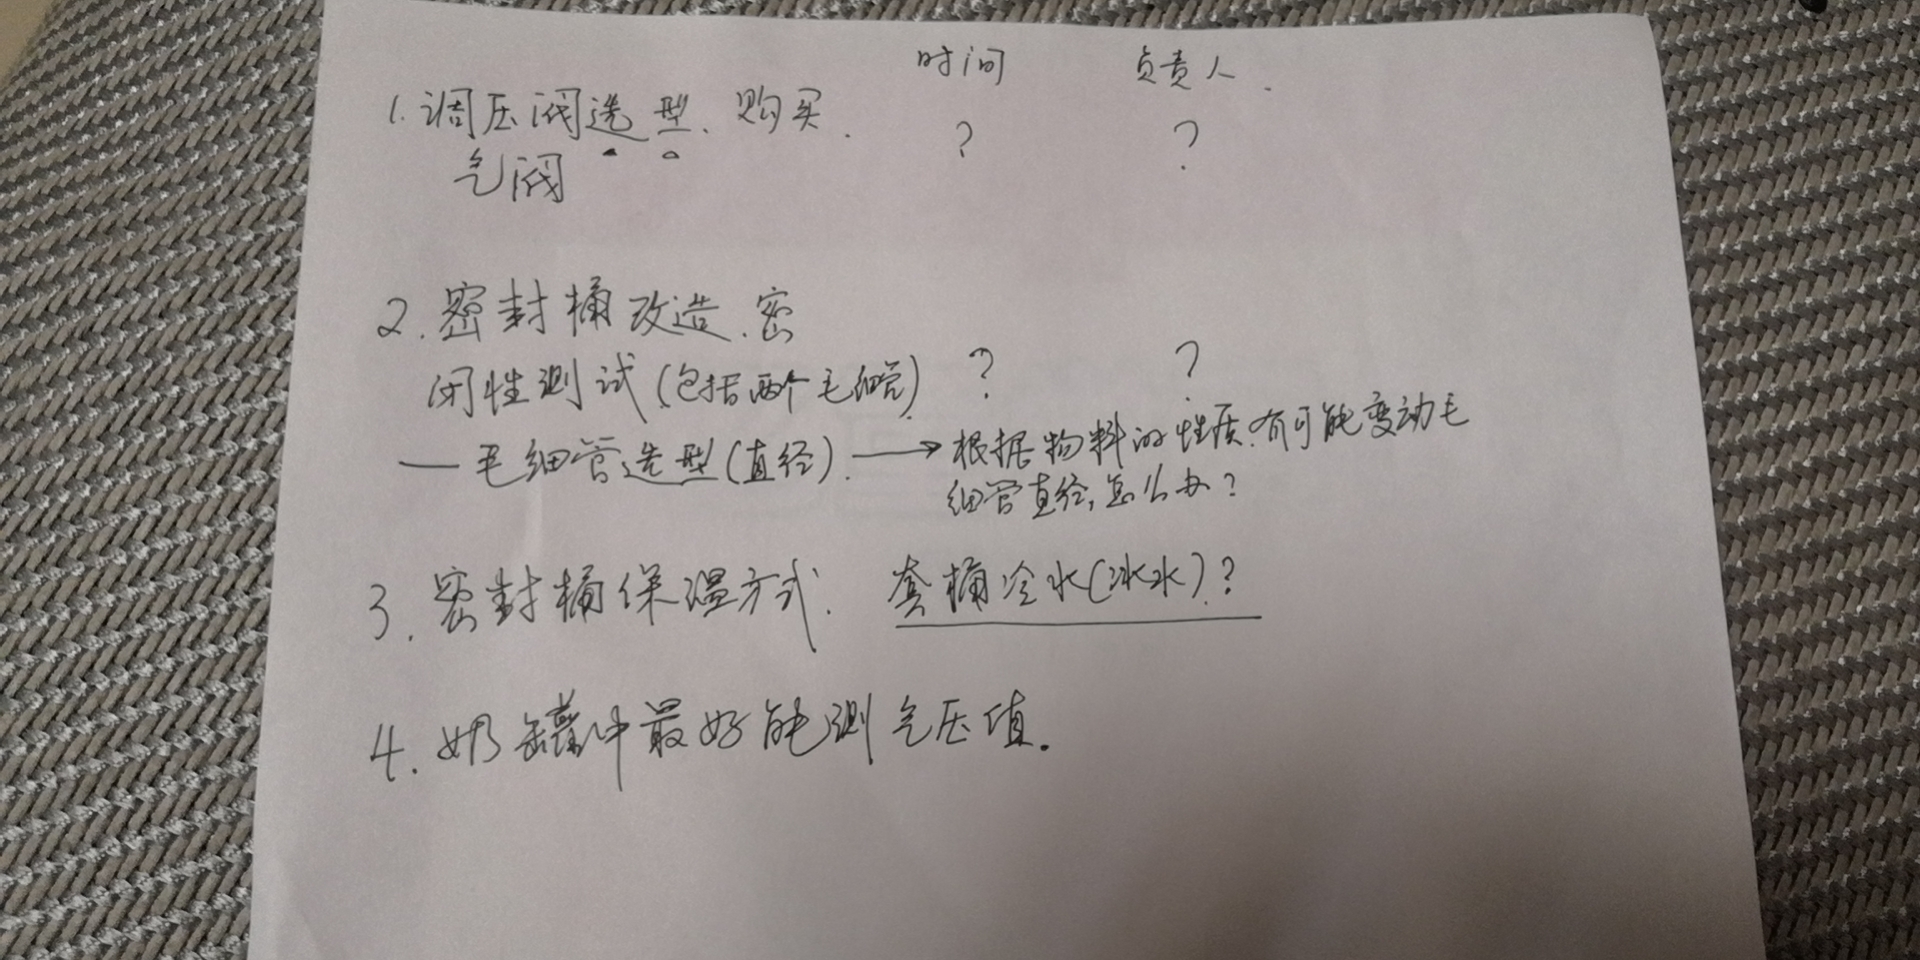 时间 负责人.
1.调压阀选型、购买. ? ?
气阀
2.密封桶改造.密
闭性测试(包括两个毛细管) ? ?
—毛细管选型(直径).→根据物料的性质.有可能变动毛
细管直径,怎么办?
3.密封桶保温方式. 套桶冷水(冰水).?
4.奶罐中最好能测气压值.